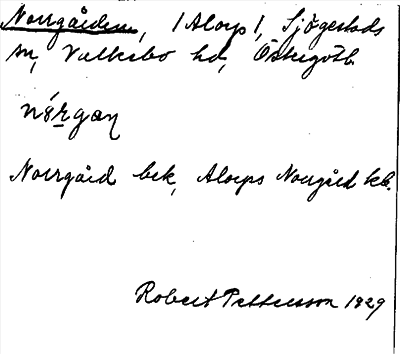 Norrgården, (Alorp), Sjögestads
sn, Valkebo hd, Östergötl.
nórgan
Norrgård bek, Alorps Norrgård kb.
Robert Pettersson 1929